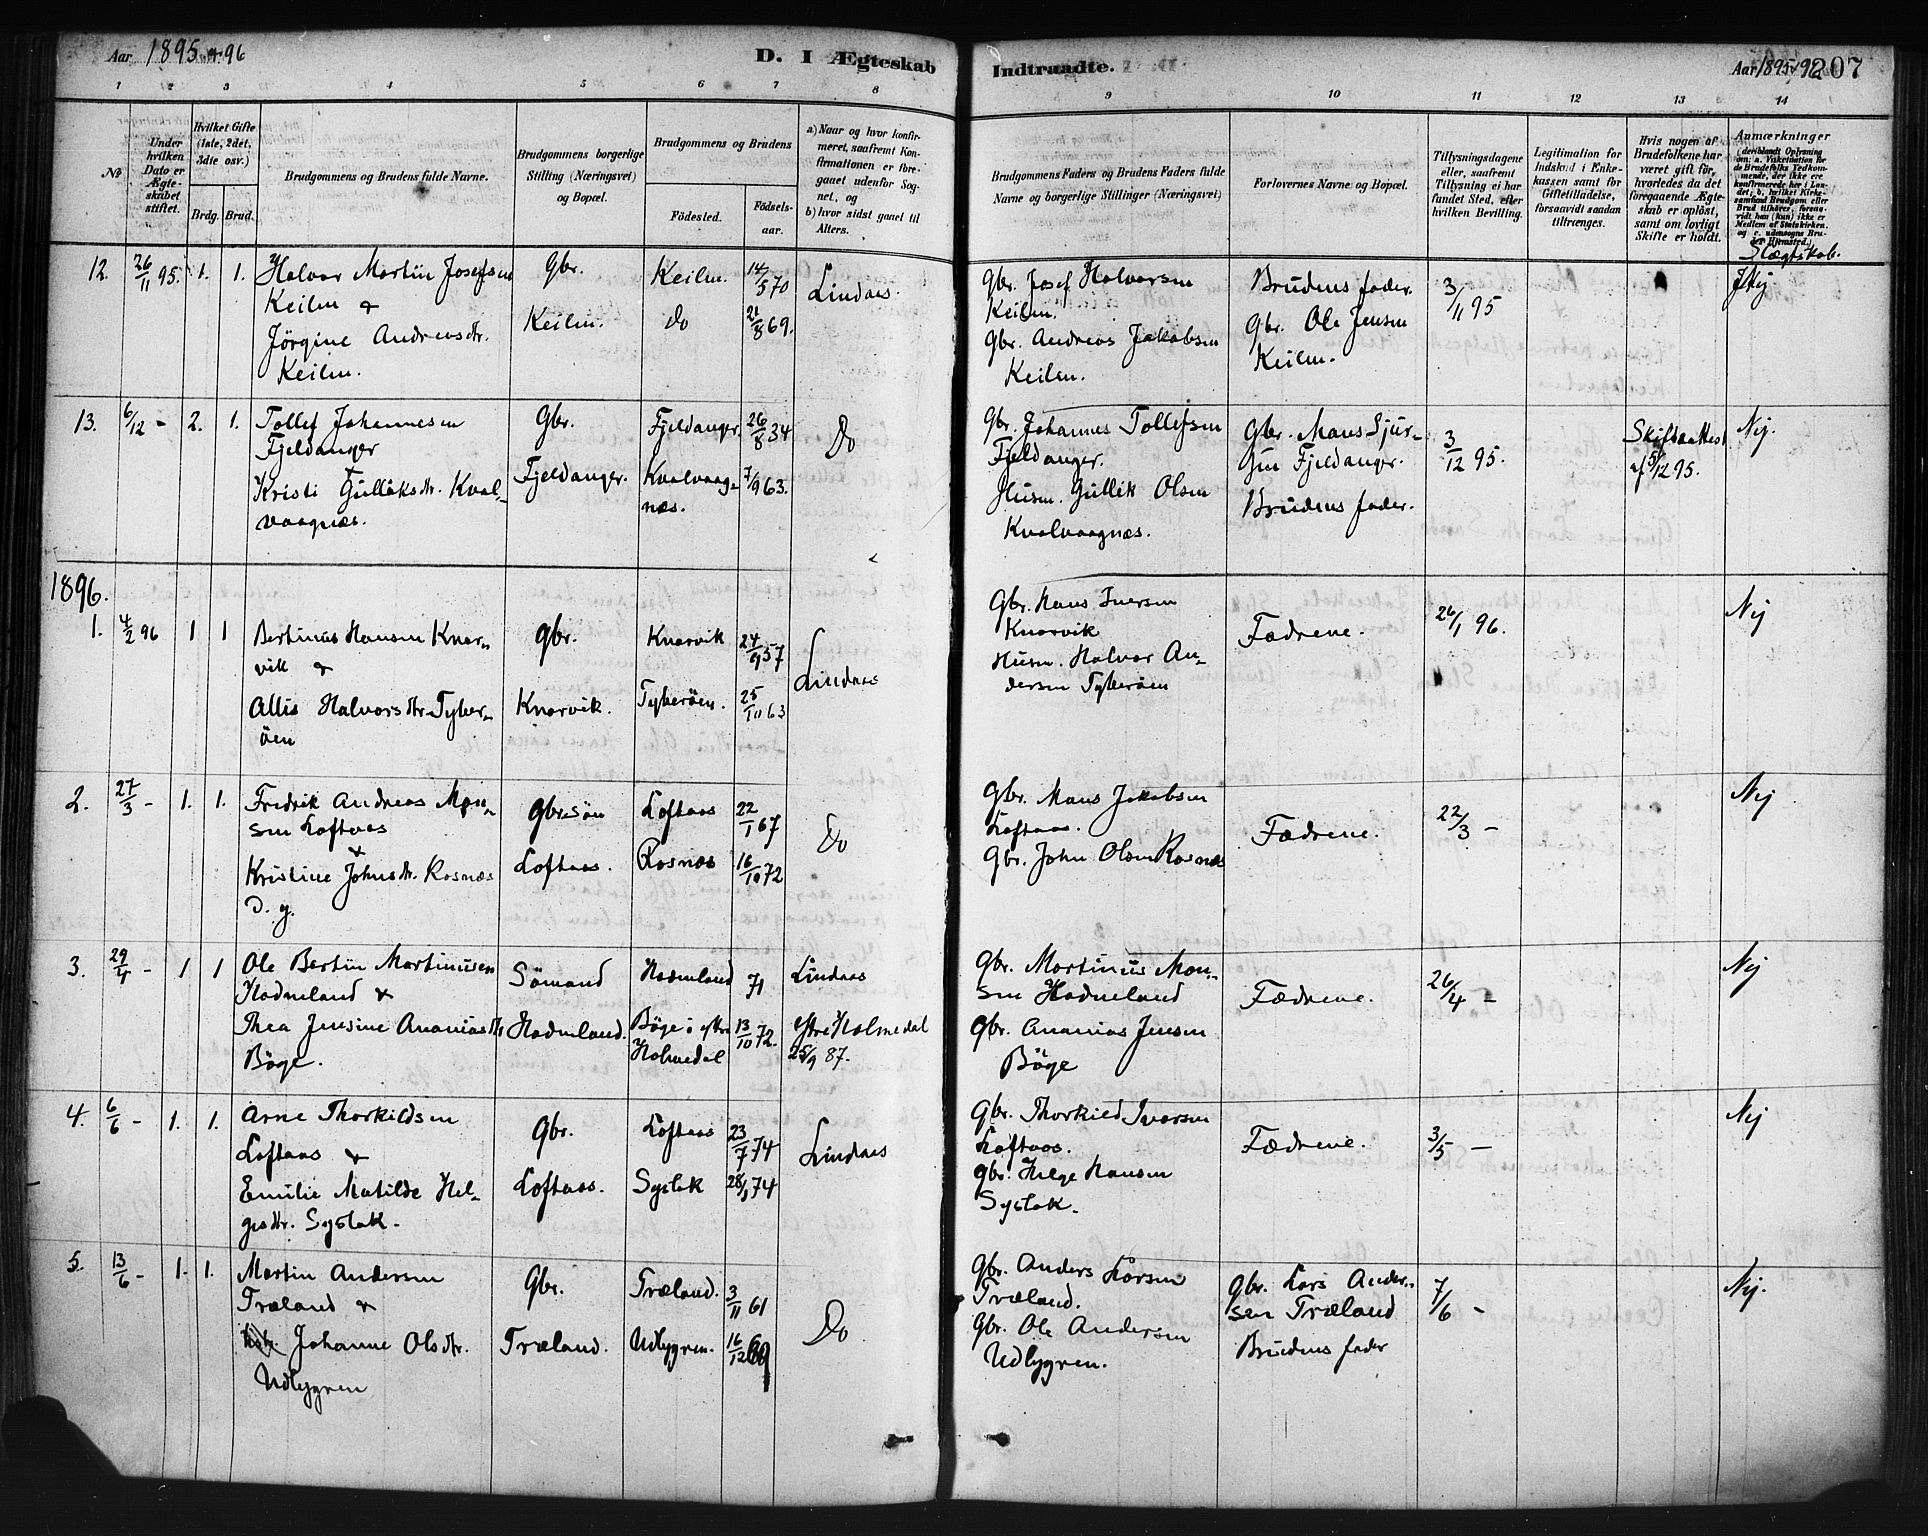 Aar 1895 og 96
D. I Ægteskab Indtraadte.
Aar 1895-96 207
1 2 3 4 5 6 7 8 9 10 11 12 13 14
No
Under hvilken Dato er Ægteskabet stiftet.
Hvilket Gifte (1ste, 2det, 3die osv.)
Brdg. Brud.
Brudgommens og Brudens fulde Navne.
Brudgommens borgerlige Stilling (Næringsvei) og Bopæl.
Brudgommens og Brudens
Fødested. Fødselsaar.
a) Naar og hvor konfirmeret, saafremt Konfirmationen er foregaaet udenfor Sognet, og
b) hvor sidst gaaet til Alters.
Brudgommens Faders og Brudens Faders fulde Navne og borgerlige Stillinger (Næringsvei)
Forlovernes Navne og Bopæl.
Tillysningsdagene eller, saafremt Tillysning ei har fundet Sted, efter hvilken Bevilling.
Legitimation for Indskud i Enkekassen samt for Giftetilladelse, forsaavidt saadan tiltrænges.
Hvis nogen af Brudefolkene har været gift før, hvorledes da det foregaaende Ægteskab er opløst, samt om lovligt Skifte er holdt.
Anmærkninger
Slægtskab.
12. 26/11 95. 1. 1. Halvor Martin Josefsen
Keilen &
Jørgine Andreasdtr.
Keilen.
Gbr.
Keilen.
Keilen. 14/5 70
Do 21/8 69.
Lindaas.
Gbr. Josef Halvorsen
Keilen.
Gbr. Andreas Jakobsen
Keilen.
Brudens fader.
Gbr. Ole Jensen
Keilen.
3/11 95
Nej
13. 6/12 - 2. 1. Tollef Johannesen
Fjeldanger
&
Kristi Gulliksdtr. Kval-
vaagnæs.
Gbr.
Fjeldanger.
Fjeldanger. 26/8 34
Kvalvaag- 7/9 63.
næs.
Do
Gbr. Johannes Tollefsen
Fjeldanger.
Husm. Gullik Olsen
Kvalvaagnæs.
Gbr. Mans Sjur-
sen Fjeldanger.
Brudens fader.
3/12 95.
Skifteattest
af 5/12 95.
Nej.
1896.
1. 4/2 96 1 1 Bertinus Hansen Knar-
vik &
Allis Halvorsdtr. Tyber-
öen
Gbr.
Knarvik.
Knarvik 24/9 57
Tyberöen. 25/10 63
Lindaas
Gbr. Hans Iversen
Knarvik
Husm. Halvor An-
dersen Tyberöen
Fædrene.
26/1 96.
Nej
2. 27/3 - 1. 1. Fredrik Andreas Mon-
sen Loftaas
&
Kristine Johnsdtr. Rosnæs
D. y.
Gbr.sön
Loftaas.
Loftaas 22/1 67
Rosnæs 16/10 72
Do
Gbr. Mans Jakobsen
Loftaas.
Gbr. John Olsen Rosnæs
Fædrene.
22/3 -
Nej
3. 29/4 - 1 1 Ole Bertin Martinusen
Hadneland &
Thea Jensine Ananiasdtr
Böge.
Sömand
Hadneland.
Hadneland 71
Böge i Ytre 13/10 72.
Holmedal
Lindaas
Ytre Holmedal
25/9 87.
Gbr. Martinus Mon-
sen Hadneland
Gbr. Ananias Jensen
Böge
Fædrene.
26/4 -
Nej
4. 6/6 - 1. 1. Arne Thorkildsen
Loftaas &
Emilie Matilde Hel-
gesdtr. Syslak.
Gbr.
Loftaas.
Loftaas 23/7 74
Syslak 74
Lindaas
Gbr. Thorkied Iversen
Loftaas.
Gbr. Helge Hansen
Syslak.
Fædrene.
3/5 -
Nej
5. 13/6 - 1. 1. Martin Andersen
Træland &
Johanne Olsdtr.
Udlygren
Gbr.
Træland.
Træland. 3/11 61
Udlygren. 16/12 69
Do
Gbr. Anders Larsen
Træland.
Gbr. Ole Andersen
Udlygren.
Gbr. Lars Ander-
sen Træland
Brudens fader
7/6 -
Nej.